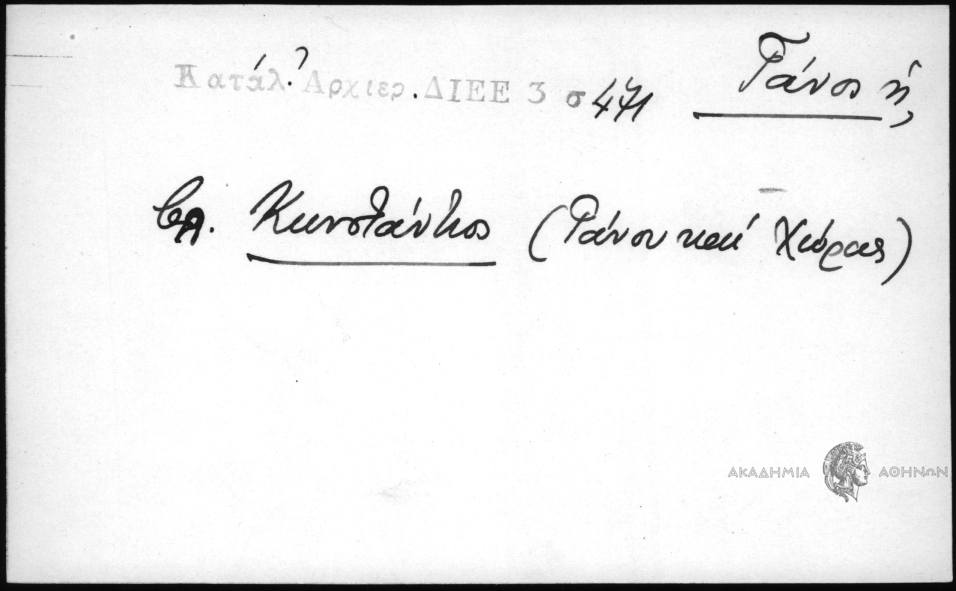 Κατάλ. Ἀρχιερ. ΔΙΕΕ 3 σ 471
Γάνος ἡ,
βλ. Κωνστάντιος (Γάνου καὶ Χώρας)
ΑΚΑΔΗΜΙΑ ΑΘΗΝΩΝ